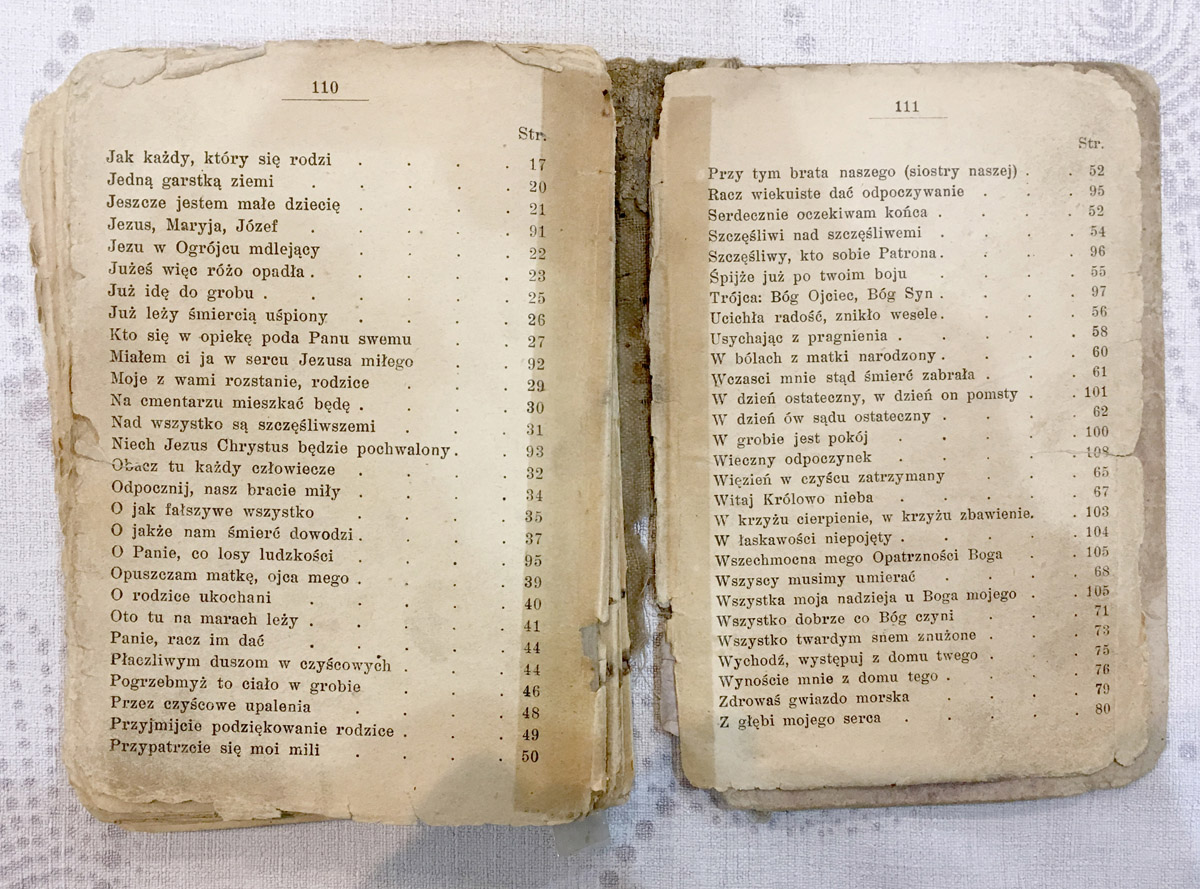 110
Str.
Jak każdy, który się rodzi . . . . 17
Jedną garstką ziemi . . . . . 20
Jeszcze jestem małe dziecię . . . . 21
Jezus, Maryja, Józef . . . . . 91
Jezu w Ogrójcu mdlejący . . . . 22
Jużeś więc różo opadła . . . . . 23
Już idę do grobu . . . . . . 25
Już leży śmiercią uśpiony . . . . 26
Kto się w opiekę poda Panu swemu . . . 27
Miałem ci ja w sercu Jezusa miłego . . . 92
Moje z wami rozstanie, rodzice . . . . 29
Na cmentarzu mieszkać będę . . . . 30
Nad wszystko są szczęśliwszemi . . . 31
Niech Jezus Chrystus będzie pochwalony . . . 93
Obacz tu każdy człowiecze . . . . 32
Odpocznij, nasz bracie miły . . . . 34
O jak fałszywe wszystko . . . . 35
O jakże nam śmierć dowodzi . . . . 37
O Panie, co losy ludzkości . . . . 95
Opuszczam matkę, ojca mego . . . . 39
O rodzice ukochani . . . . . 40
Oto tu na marach leży . . . . . 41
Panie, racz im dać . . . . . 44
Płaczliwym duszom w czyścowych . . . 44
Pogrzebmyż to ciało w grobie . . . 46
Przez czyścowe upalenia . . . . 48
Przyjmijcie podziękowanie rodzice . . . 49
Przypatrzcie się moi mili . . . . 50
111
Str.
Przy tym brata naszego (siostry naszej) . . 52
Racz wiekuiste dać odpoczywanie . . . 95
Serdecznie oczekiwam końca . . . . 52
Szczęśliwi nad szczęśliwemi . . . . 54
Szczęśliwy, kto sobie Patrona . . . . 96
Śpijże już po twoim boju . . . . 55
Trójca: Bóg Ojciec, Bóg Syn . . . . 97
Ucichła radość, znikło wesele . . . . 56
Usychając z pragnienia . . . . . 58
W bólach z matki narodzony . . . . 60
Wczasci mnie stąd śmierć zabrała . . . 61
W dzień ostateczny, w dzień on pomsty . . 101
W dzień ów sądu ostateczny . . . . 62
W grobie jest pokój . . . . . 100
Wieczny odpoczynek . . . . . 108
Więzień w czyścu zatrzymany . . . 65
Witaj Królowo nieba . . . . . 67
W krzyżu cierpienie, w krzyżu zbawienie. . 103
W łaskawości niepojęty . . . . . 104
Wszechmocna mego Opatrzności Boga . . 105
Wszyscy musimy umierać . . . . 68
Wszystka moja nadzieja u Boga mojego . . 105
Wszystko dobrze co Bóg czyni . . . 71
Wszystko twardym snem znużone . . . 73
Wychodź, występuj z domu twego . . . 75
Wynoście mnie z domu tego . . . . 76
Zdrowaś gwiazdo morska . . . . 79
Z głębi mojego serca . . . . . 80